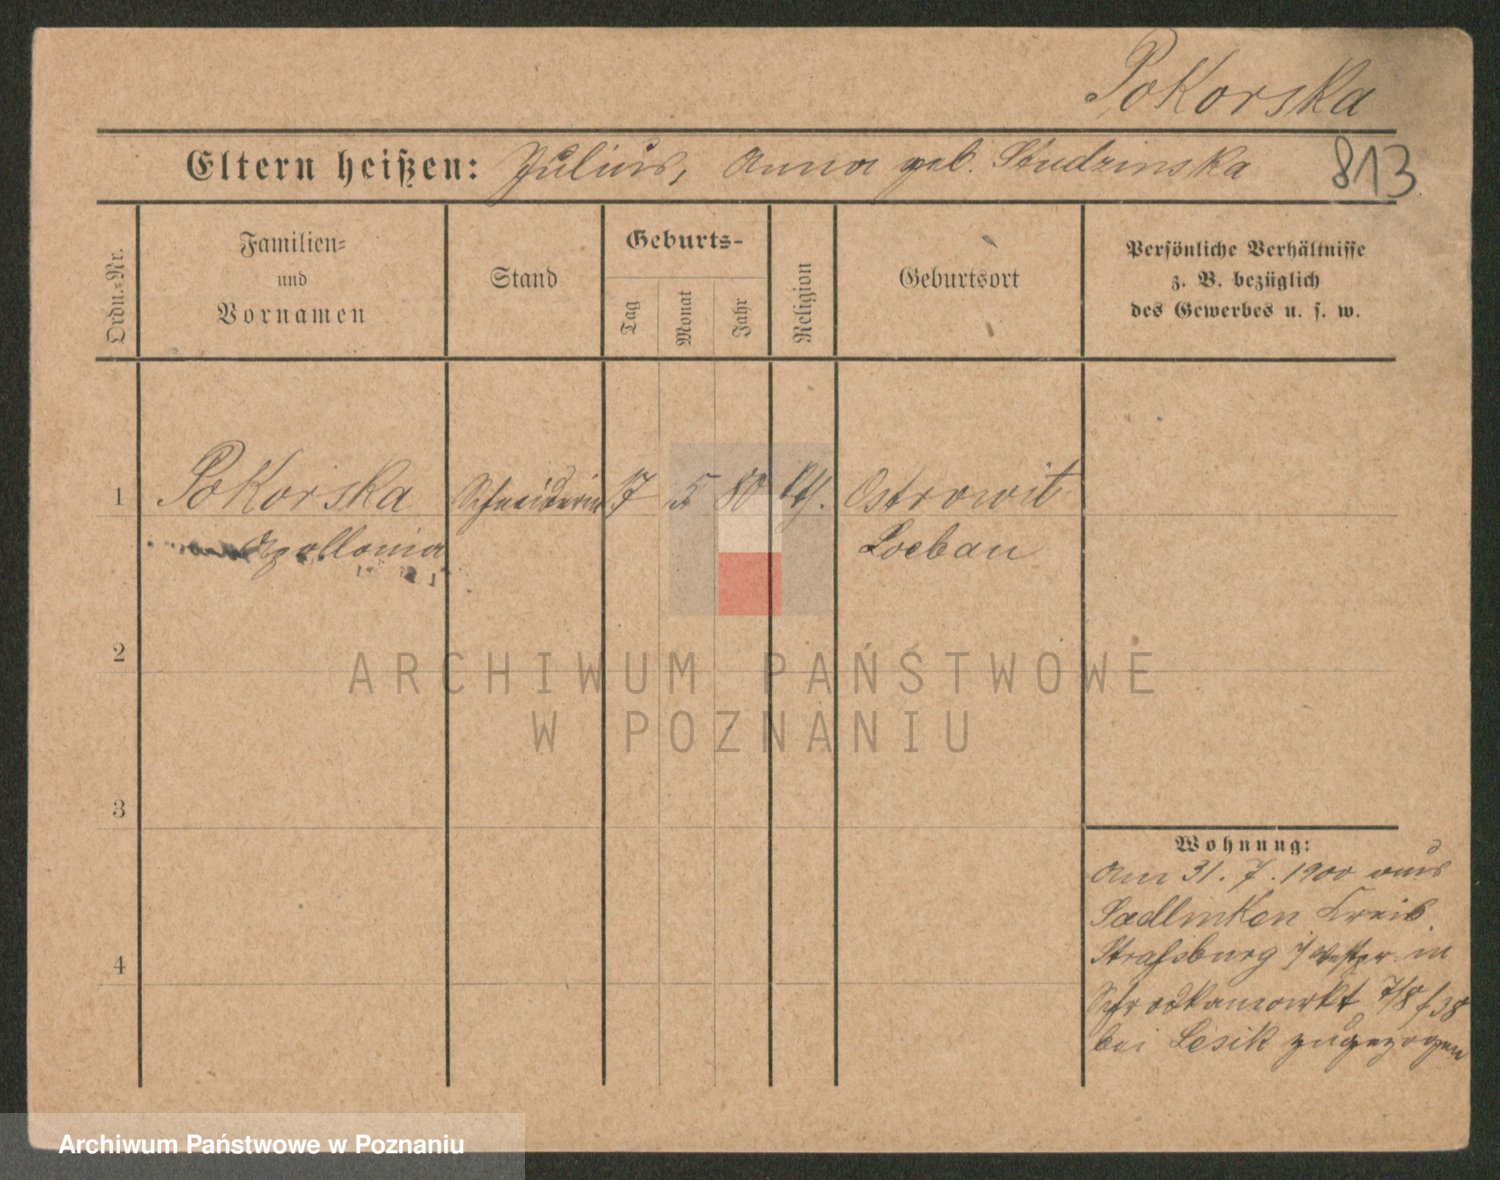 Pokorska
Eltern heißen: Julius, Anna geb. Studzinska
813
Ordn.-Nr.
Familien-
und
Vornamen
Stand
Geburts-
Tag
Monat
Jahr
Religion
Geburtsort
Persönliche Verhältnisse
z. B. bezüglich
des Gewerbes u. s. w.
1 Pokorska Schneiderin 17 5 80 kth. Ostrowit
Apollonia Loebau
2
3
4
Wohnung:
Am 31. 7. 1900 aus
Sadlinken Kreis
Strassburg i/Westpr. in
Schrodkamarkt 7/8
bei Lesik zugezogen
ARCHIWUM PAŃSTWOWE
W POZNANIU
Archiwum Państwowe w Poznaniu